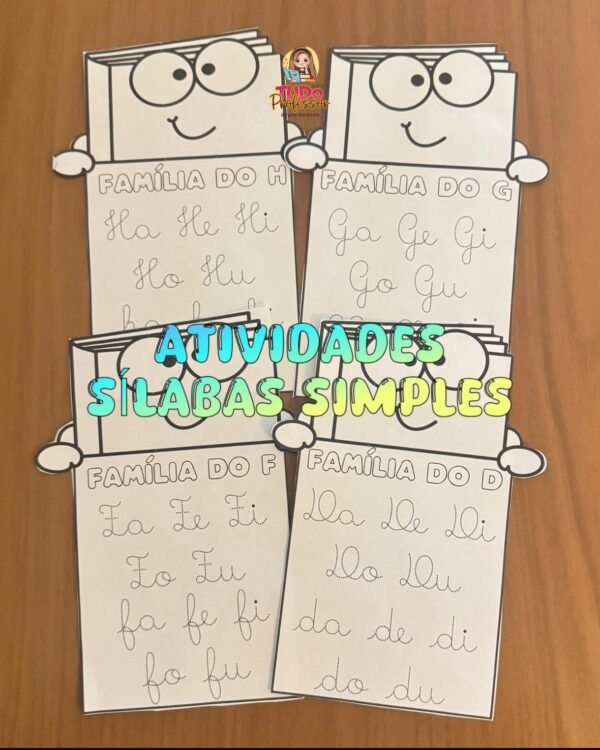 TUDO
Professor
FAMÍLIA DO H
Ha He Hi
Ho Hu
FAMÍLIA DO G
Ga Ge Gi
Go Gu
ATIVIDADES
SÍLABAS SIMPLES
FAMÍLIA DO F
Fa Fe Fi
Fo Fu
fa fe fi
fo fu
FAMÍLIA DO D
Da De Di
Do Du
da de di
do du